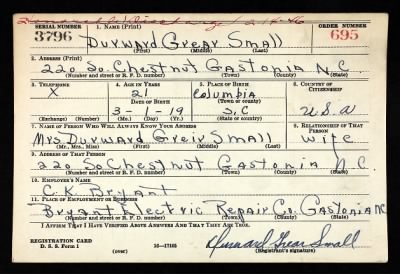 SERIAL NUMBER 1. NAME (Print) ORDER NUMBER
3796 Durward Grear Small 695
2. ADDRESS (Print)
220 So. Chestnut Gastonia N.C.
(Number and street or R. F. D. number) (Town) (County) (State)
3. TELEPHONE 4. AGE IN YEARS 5. PLACE OF BIRTH 6. COUNTRY OF CITIZENSHIP
X 21 Columbia
DATE OF BIRTH
3-1-19 S.C U.S.A
(Exchange) (No.) (Mo.) (Day) (Yr.) (State or country)
7. NAME OF PERSON WHO WILL ALWAYS KNOW YOUR ADDRESS 8. RELATIONSHIP OF THAT PERSON
Mrs Durward Greir Small Wife
(Mr., Mrs., Miss) (First) (Middle) (Last)
9. ADDRESS OF THAT PERSON
220 So Chestnut Gastonia N.C.
(Number and street or R. F. D. number) (Town) (County) (State)
10. EMPLOYER'S NAME
C.K. Bryant
11. PLACE OF EMPLOYMENT OR BUSINESS
Bryant Electric Repair Co. Gastonia N.C
(Number and street or R. F. D. number) (Town) (County) (State)
I AFFIRM THAT I HAVE VERIFIED ABOVE ANSWERS AND THAT THEY ARE TRUE.
REGISTRATION CARD
D. S. S. Form 1 (over) 16—17105 Durward Grear Small
(Registrant's signature)